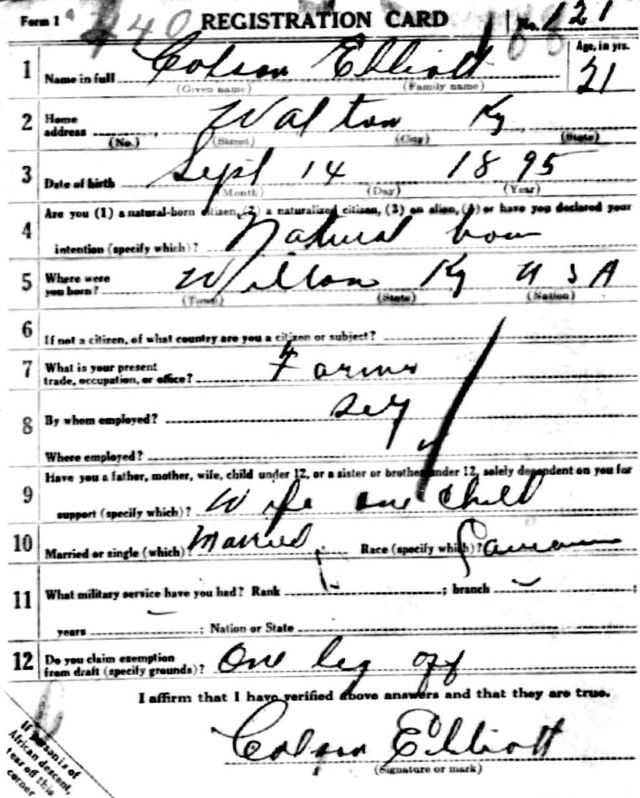 Form 1 REGISTRATION CARD No. 121
1 Name in full Colson Elliott Age, in yrs. 21
(Given name) (Family name)
2 Home address Walton Ky
(No.) (Street) (City) (State)
3 Date of birth Sept 14 1895
(Month) (Day) (Year)
4 Are you (1) a natural-born citizen, (2) a naturalized citizen, (3) an alien, (4) or have you declared your
intention (specify which)? Natural born
5 Where were you born? Wilton Ky U S A
(Town) (State) (Nation)
6 If not a citizen, of what country are you a citizen or subject?
7 What is your present trade, occupation, or office? Farmer
8 By whom employed? Self
Where employed?
9 Have you a father, mother, wife, child under 12, or a sister or brother under 12, solely dependent on you for
support (specify which)? Wife one child
10 Married or single (which)? Married Race (specify which)?
11 What military service have you had? Rank ; branch ;
years ; Nation or State
12 Do you claim exemption from draft (specify grounds)? One leg off
I affirm that I have verified above answers and that they are true.
Colson Elliott
(Signature or mark)
If person is of
African descent,
tear off this
corner